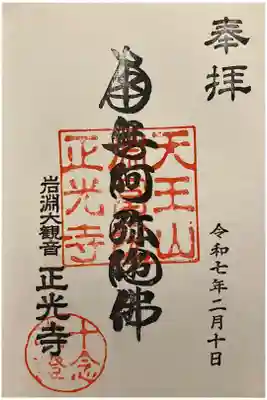 奉拝
令和七年二月十日
南無阿弥陀佛
天王山
正光寺
岩淵大観音 正光寺
十念